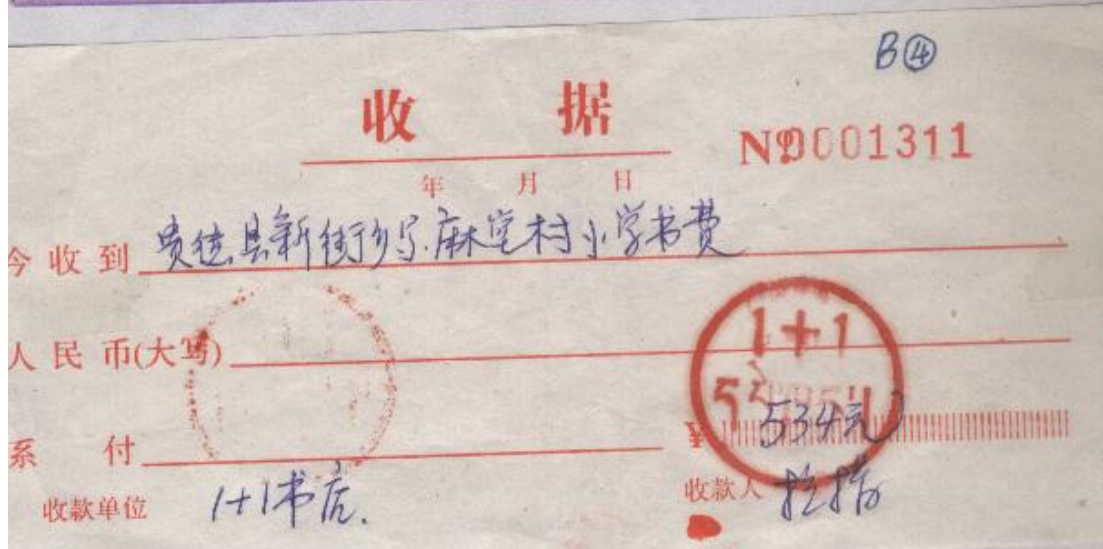 B④
收 据
№0001311
年 月 日
今收到 贵德县新街乡尕麻堂村小学书费
人民币(大写)
1+1
系 付
¥ 534元
收款单位 1+1书店.
收款人